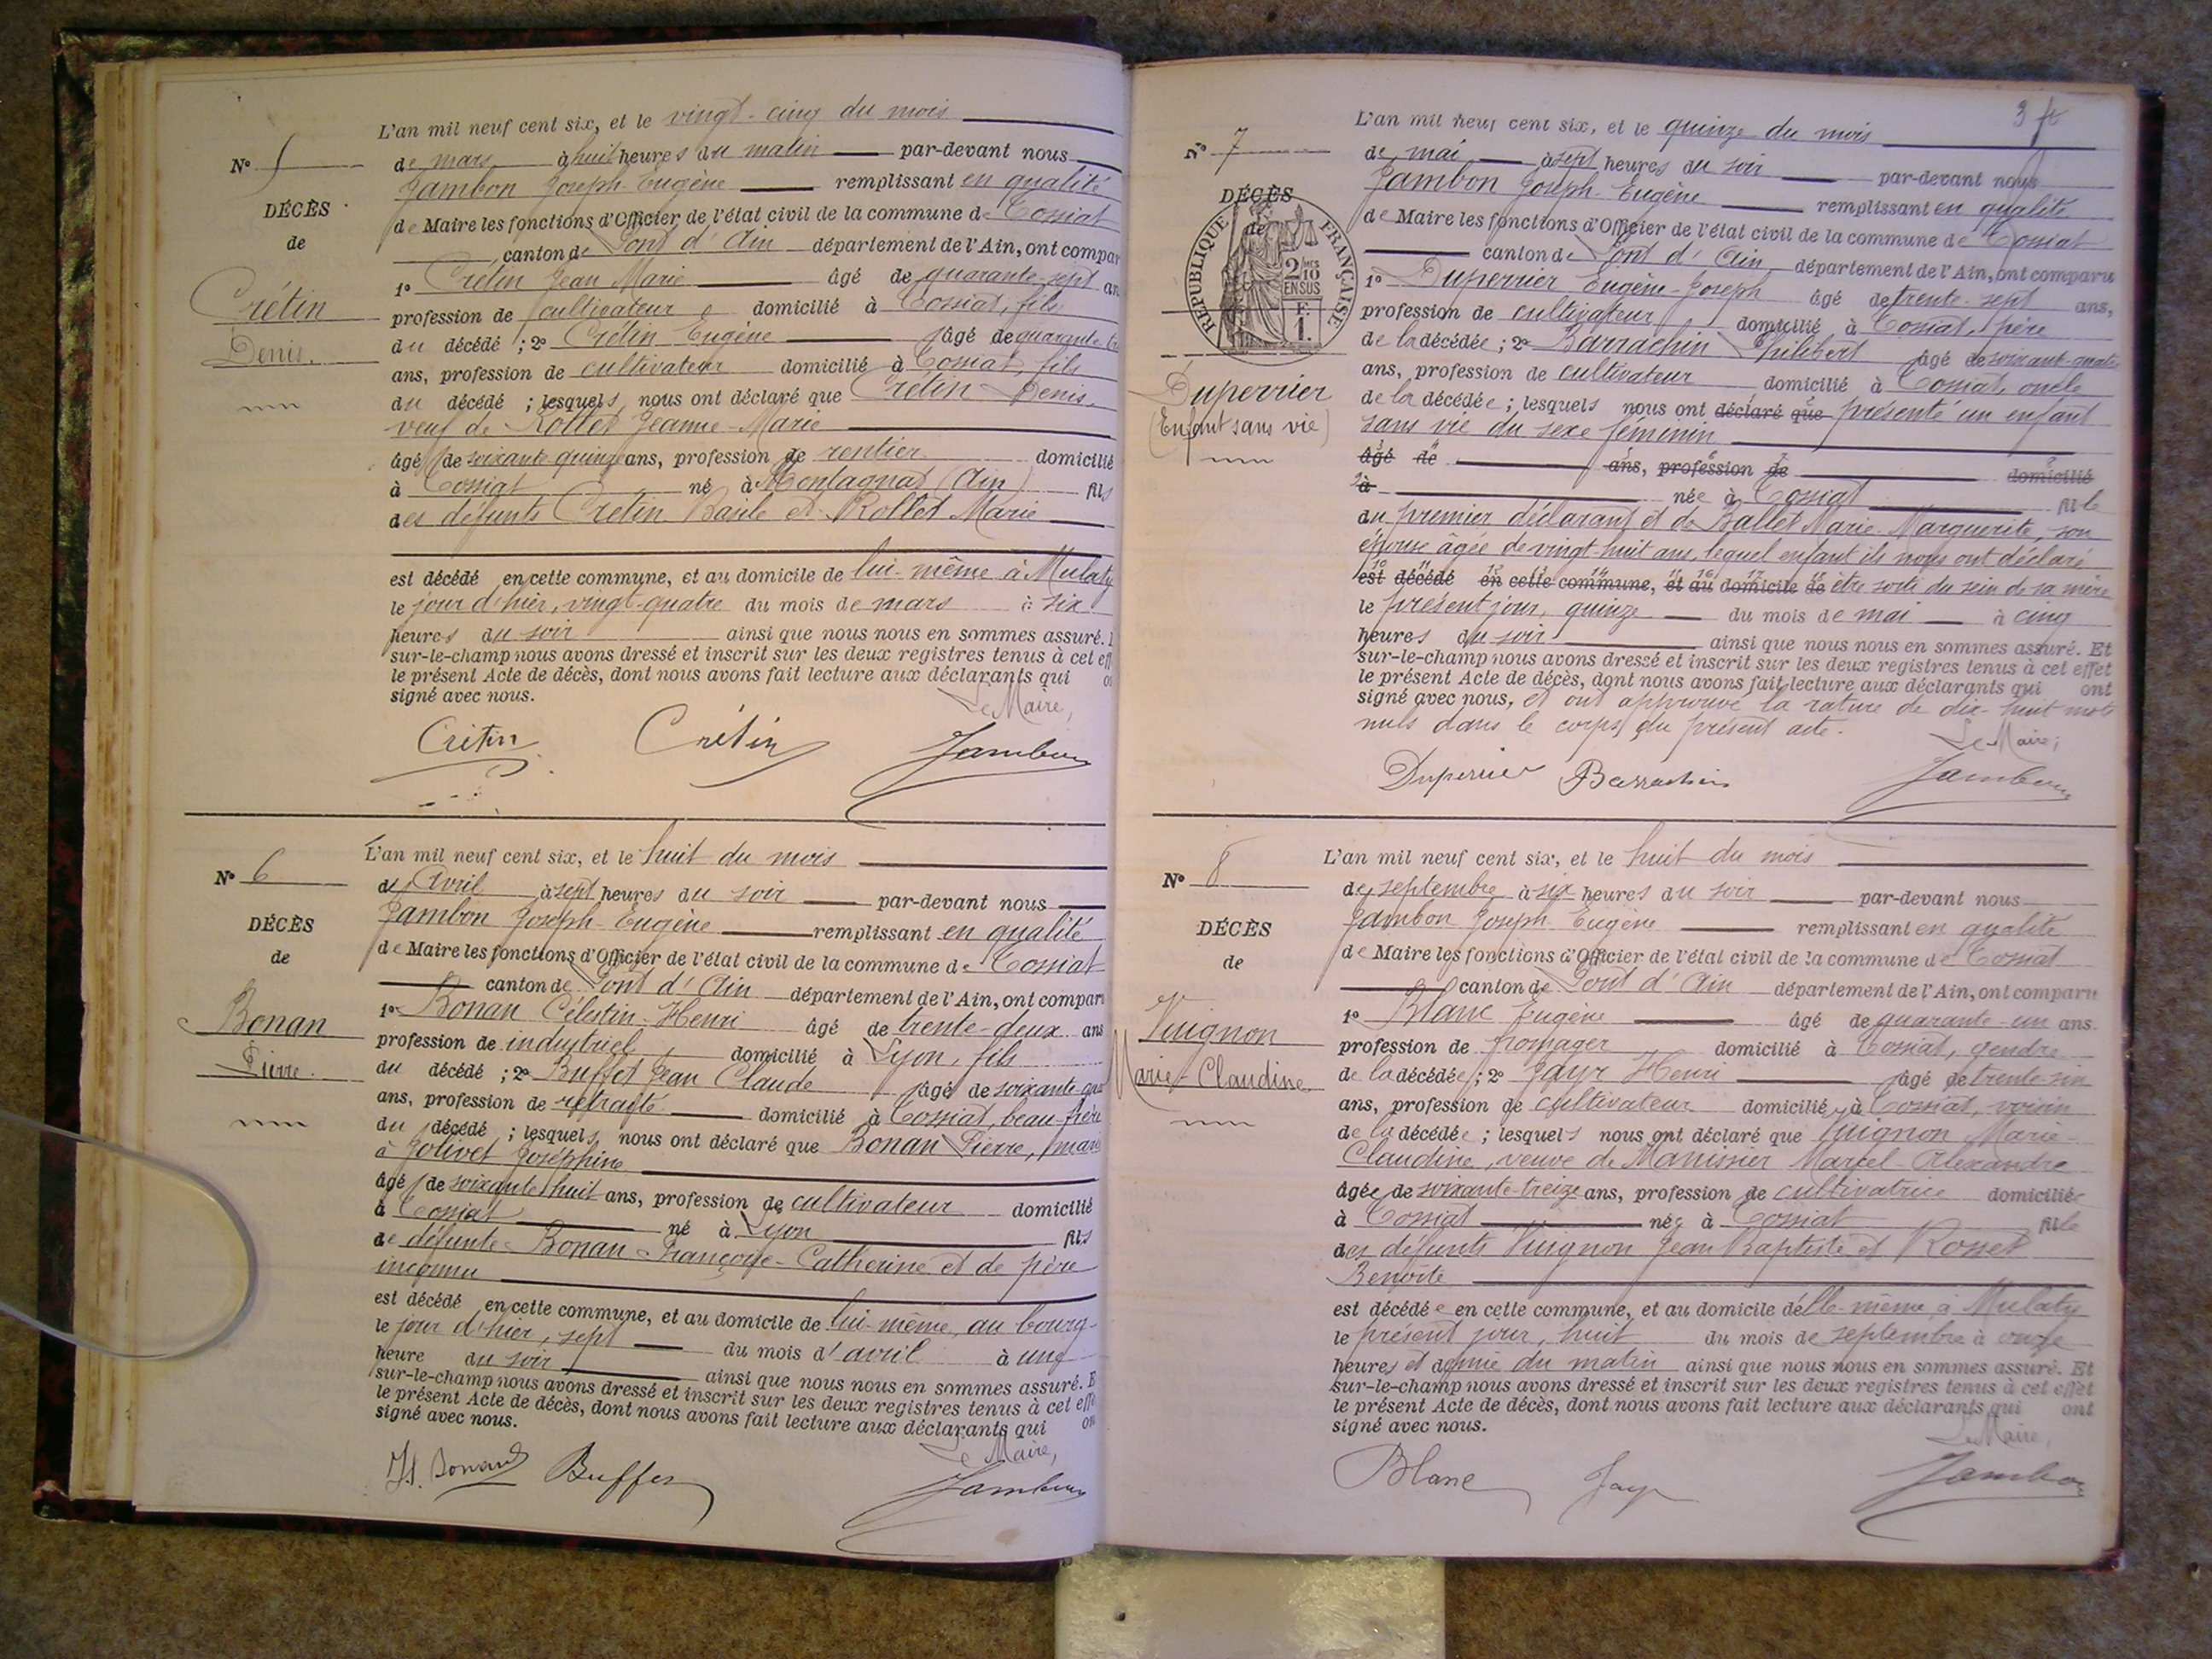 L'an mil neuf cent six, et le vingt-cinq du mois
N° 5
de mars à huit heures du matin par-devant nous
Jambon Joseph-Eugène remplissant en qualité
DÉCÈS
de Maire les fonctions d'Officier de l'état civil de la commune de Tossiat
de
canton de Pont d'Ain département de l'Ain, ont compar
1° Crétin Jean Marie âgé de quarante-sept an
Crétin
profession de cultivateur domicilié à Tossiat, fils
Denis.
du décédé ; 2° Crétin Eugène âgé de quarante
ans, profession de cultivateur domicilié à Tossiat, fils
du décédé ; lesquels nous ont déclaré que Crétin Denis
veuf de Rollet Jeanne-Marie
âgé de soixante quinze ans, profession de rentier domicilié
à Tossiat né à Montagnat (Ain) fils
des défunts Crétin et Rollet Marie
est décédé en cette commune, et au domicile de lui-même à Mulaty
le jour d'hier, vingt-quatre du mois de mars à six
heures du soir ainsi que nous nous en sommes assuré.
sur-le-champ nous avons dressé et inscrit sur les deux registres tenus à cet eff
le présent Acte de décès, dont nous avons fait lecture aux déclarants qui o
signé avec nous.
Le Maire,
Crétin Crétin Jambon
L'an mil neuf cent six, et le huit du mois
N° 6
de Avril à sept heures du soir par-devant nous
Jambon Joseph-Eugène remplissant en qualité
DÉCÈS
de Maire les fonctions d'Officier de l'état civil de la commune de Tossiat
de
canton de Pont d'Ain département de l'Ain, ont compar
1° Bonan Célestin-Henri âgé de trente-deux ans
Bonan
profession de industriel domicilié à Lyon, fils
Pierre.
du décédé ; 2° Buffet Jean Claude âgé de soixante
ans, profession de retraité domicilié à Tossiat, beau-frère
du décédé ; lesquels nous ont déclaré que Bonan Pierre, mari
à Jolivet Joséphine
âgé de soixante huit ans, profession de cultivateur domicilié
à Tossiat né à Lyon fils
de défunte Bonan Françoise-Catherine et de père
inconnu
est décédé en cette commune, et au domicile de lui-même, au bourg
le jour d'hier, sept du mois d'avril à une
heure du soir ainsi que nous nous en sommes assuré. E
sur-le-champ nous avons dressé et inscrit sur les deux registres tenus à cet eff
le présent Acte de décès, dont nous avons fait lecture aux déclarants qui on
signé avec nous.
Le Maire,
H. Bonand Buffet Jambon
3
L'an mil neuf cent six, et le quinze du mois
N° 7
de mai à sept heures du soir par-devant nous
Jambon Joseph-Eugène remplissant en qualité
DÉCÈS
de
RÉPUBLIQUE FRANÇAISE
2/10 EN SUS
F. 1.
de Maire les fonctions d'Officier de l'état civil de la commune de Tossiat
canton de Pont d'Ain département de l'Ain, ont comparu
1° Duperrier Eugène-Joseph âgé de trente-sept ans,
profession de cultivateur domicilié à Tossiat, père
de la décédée ; 2° Barrachin Philibert âgé de soixante-quatre
Duperrier
(Enfant sans vie)
ans, profession de cultivateur domicilié à Tossiat, oncle
de la décédée ; lesquels nous ont déclaré que présenté un enfant
sans vie du sexe féminin
âgé de ans, profession de domicilié
à née à Tossiat fille
du premier déclarant et de Ballet Marie-Marguerite, son
épouse âgée de vingt-huit ans, lequel enfant ils nous ont déclaré
est décédé en cette commune, et au domicile de être sorti du sein de sa mère
le présent jour, quinze du mois de mai à cinq
heures du soir ainsi que nous nous en sommes assuré. Et
sur-le-champ nous avons dressé et inscrit sur les deux registres tenus à cet effet
le présent Acte de décès, dont nous avons fait lecture aux déclarants qui ont
signé avec nous, et ont approuvé la rature de dix-huit mots
nuls dans le corps du présent acte.
Le Maire,
Duperrier Barrachin Jambon
L'an mil neuf cent six, et le huit du mois
N° 8
de septembre à six heures du soir par-devant nous
Jambon Joseph Eugène remplissant en qualité
DÉCÈS
de Maire les fonctions d'Officier de l'état civil de la commune de Tossiat
de
canton de Pont d'Ain département de l'Ain, ont comparu
1° Blanc Eugène âgé de quarante-un ans
Vuignon
profession de fromager domicilié à Tossiat, gendre
Marie-Claudine
de la décédée ; 2° Jayr Henri âgé de trente-six
ans, profession de cultivateur domicilié à Tossiat, voisin
de la décédée ; lesquels nous ont déclaré que Vuignon Marie-
Claudine, veuve de Manissier Marcel-Alexandre
âgée de soixante-treize ans, profession de cultivatrice domiciliée
à Tossiat née à Tossiat fille
des défunts Vuignon Jean Baptiste et Rosset
Benoîte
est décédée en cette commune, et au domicile d'elle-même à Mulaty
le présent jour, huit du mois de septembre à onze
heures et demie du matin ainsi que nous nous en sommes assuré. Et
sur-le-champ nous avons dressé et inscrit sur les deux registres tenus à cet effet
le présent Acte de décès, dont nous avons fait lecture aux déclarants qui ont
signé avec nous.
Le Maire,
Blanc Jayr Jambon